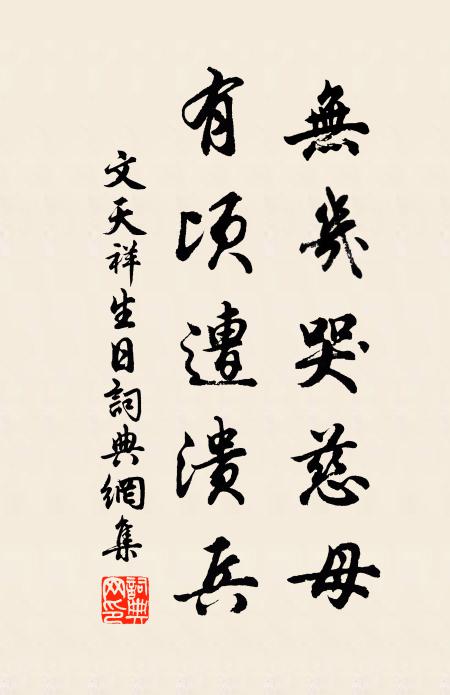 無幾哭慈母
有頃遭潰兵
文天祥生日詞典網集
詞典網印